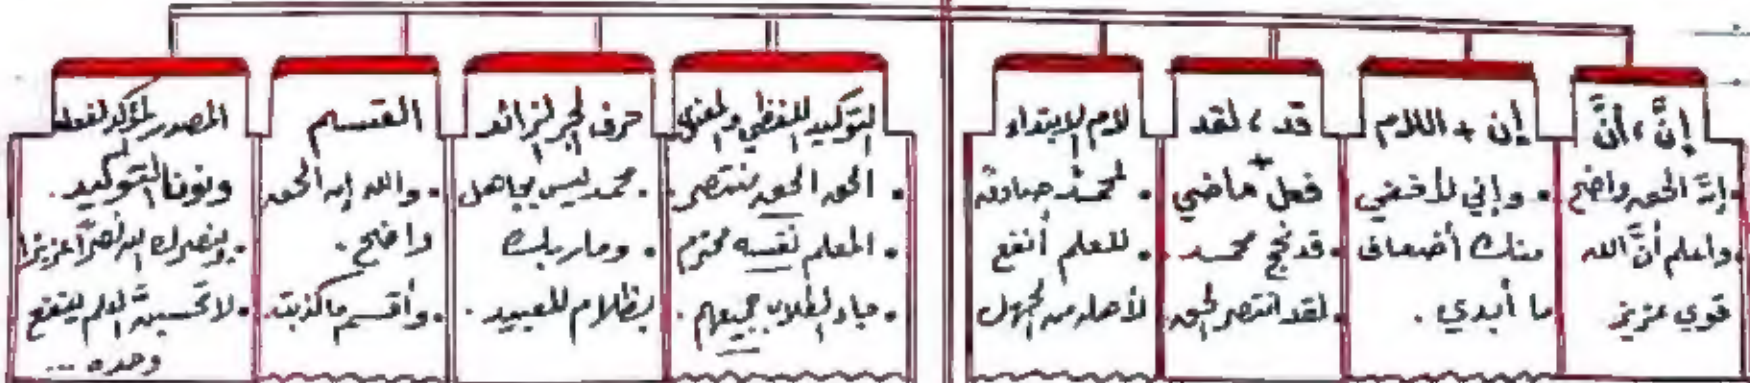 إنَّ ، أنَّ
• إنَّ الحق واضح
واعلم أنَّ الله
قوي عزيز.
إن + اللام
• وإني لأخفي
منك أضعاف
ما أبدي .
قد ، لقد
+
فعل ماضي
• قد نجح محمد
• لقد انتصر الحق
لام الابتداء
• لمحمدٌ صادق
• للعلم أنفع
لأهله من الجهل
التوكيد اللفظي والمعنوي
• الحق الحق منتصر
• المعلم نفسه محترم
• جاء الطلاب جميعهم .
حرف الجر الزائد
• محمد ليس بجاهل
• وما ربك
بظلام للعبيد .
القسم
• والله إن الحق
واضح .
• وأقسم ما كذبت
المصدر المؤكد لفعله
ونونا التوكيد .
• وينصرك الله نصرًا عزيزا
• لا تحسبنَّ العلم ينفع
وحده ...